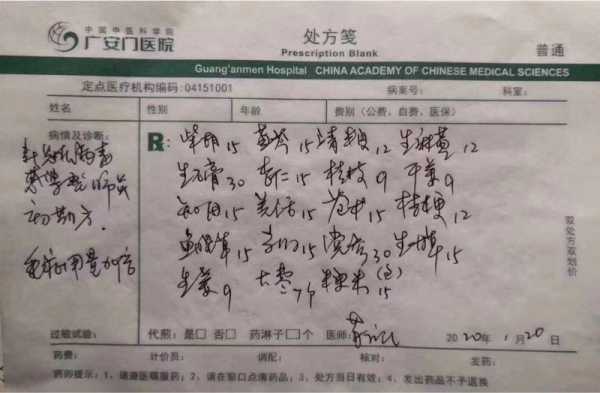 中国中医科学院
广安门医院
处方笺
Prescription Blank
普通
Guang'anmen Hospital CHINA ACADEMY OF CHINESE MEDICAL SCIENCES
定点医疗机构编码:04151001 病案号: 科室:
姓名 性别 年龄 费别(公费、自费、医保)
病情及诊断:
R: 柴胡15 黄芩15 青蒿12 生麻黄12
生石膏30 杏仁15 桂枝9 干姜9
知母15 羌活15 苍术15 桔梗12
鱼腥草15 15 30 生甘草15
生姜9 大枣7个 粳米(包)15
初期方.
重症用量加倍
双处方双划价
过敏试验: 代煎:是□ 否□ 药淋子□个 医师: 2020年1月20日
药费: 计价员: 调配: 核对: 发药:
药师提示:1、请遵医嘱服药;2、请在窗口点清药品;3、处方当日有效;4、发出药品不予退换